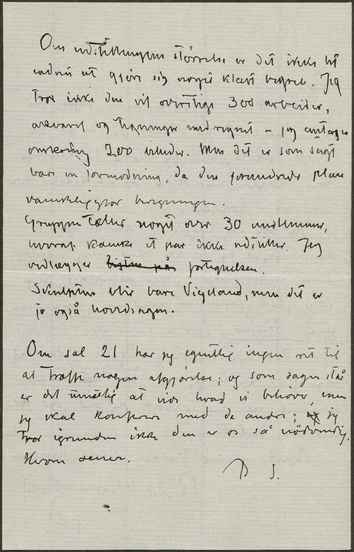 Om udstillingens størrelse er det ikke let
endnu at gjøre sig noget klart begreb. Jeg
tror ikke den vil overstige 300 arbeider,
akvarel og tegninger medregnet – jeg antager
omkring 200 billeder. Men det er som sagt
bare en formodning, da den
vanskeliggjør beregningen.
Gruppen tæller noget over 30 medlemmer,
hvoraf kanske et par ikke udstiller. Jeg
vedlægger fortegnelsen.
Skulptur blir bare Vigeland, men det er
jo også hovedsagen.
Om sal 21 har jeg egentlig ingen ret til
at træffe nogen afgjørelse; og som sagen står
er det umulig at vide hvad vi behøver, men
jeg skal konferere med de andre; jeg
tror igrunden ikke den er os så nødvendig.
Herom senere.